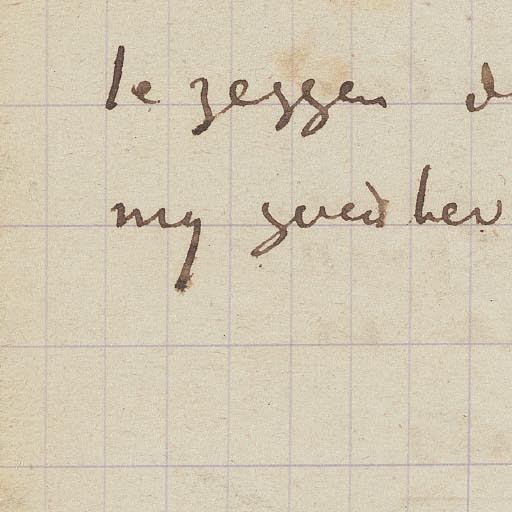 te zeggen d
my goed her